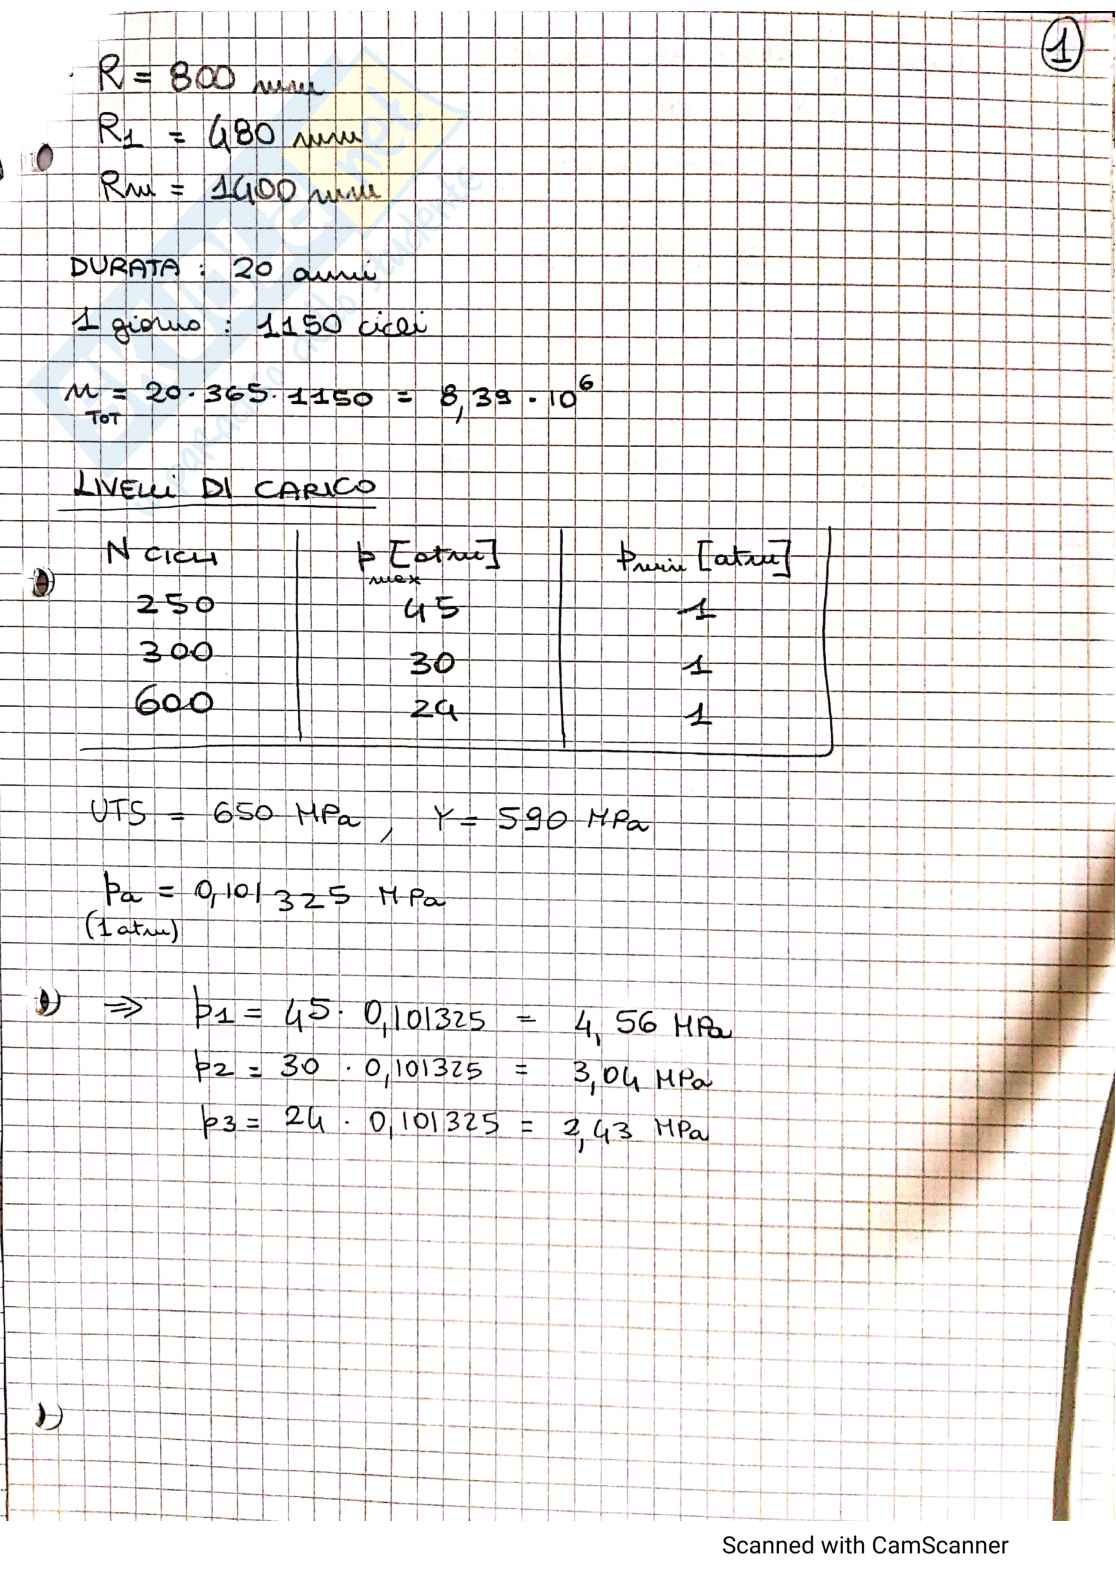 1
R = 800 mm
R1 = 480 mm
Rm = 1400 mm
DURATA : 20 anni
1 giorno : 1150 cicli
n TOT = 20·365·1150 = 8,39·10^6
LIVELLI DI CARICO
N CICLI p max [atm] pmin [atm]
250 45 1
300 30 1
600 24 1
UTS = 650 MPa, Y = 590 MPa
pa = 0,101325 MPa
(1 atm)
⇒ p1 = 45· 0,101325 = 4,56 MPa
p2 = 30 · 0,101325 = 3,04 MPa
p3 = 24 · 0,101325 = 2,43 MPa
Scanned with CamScanner